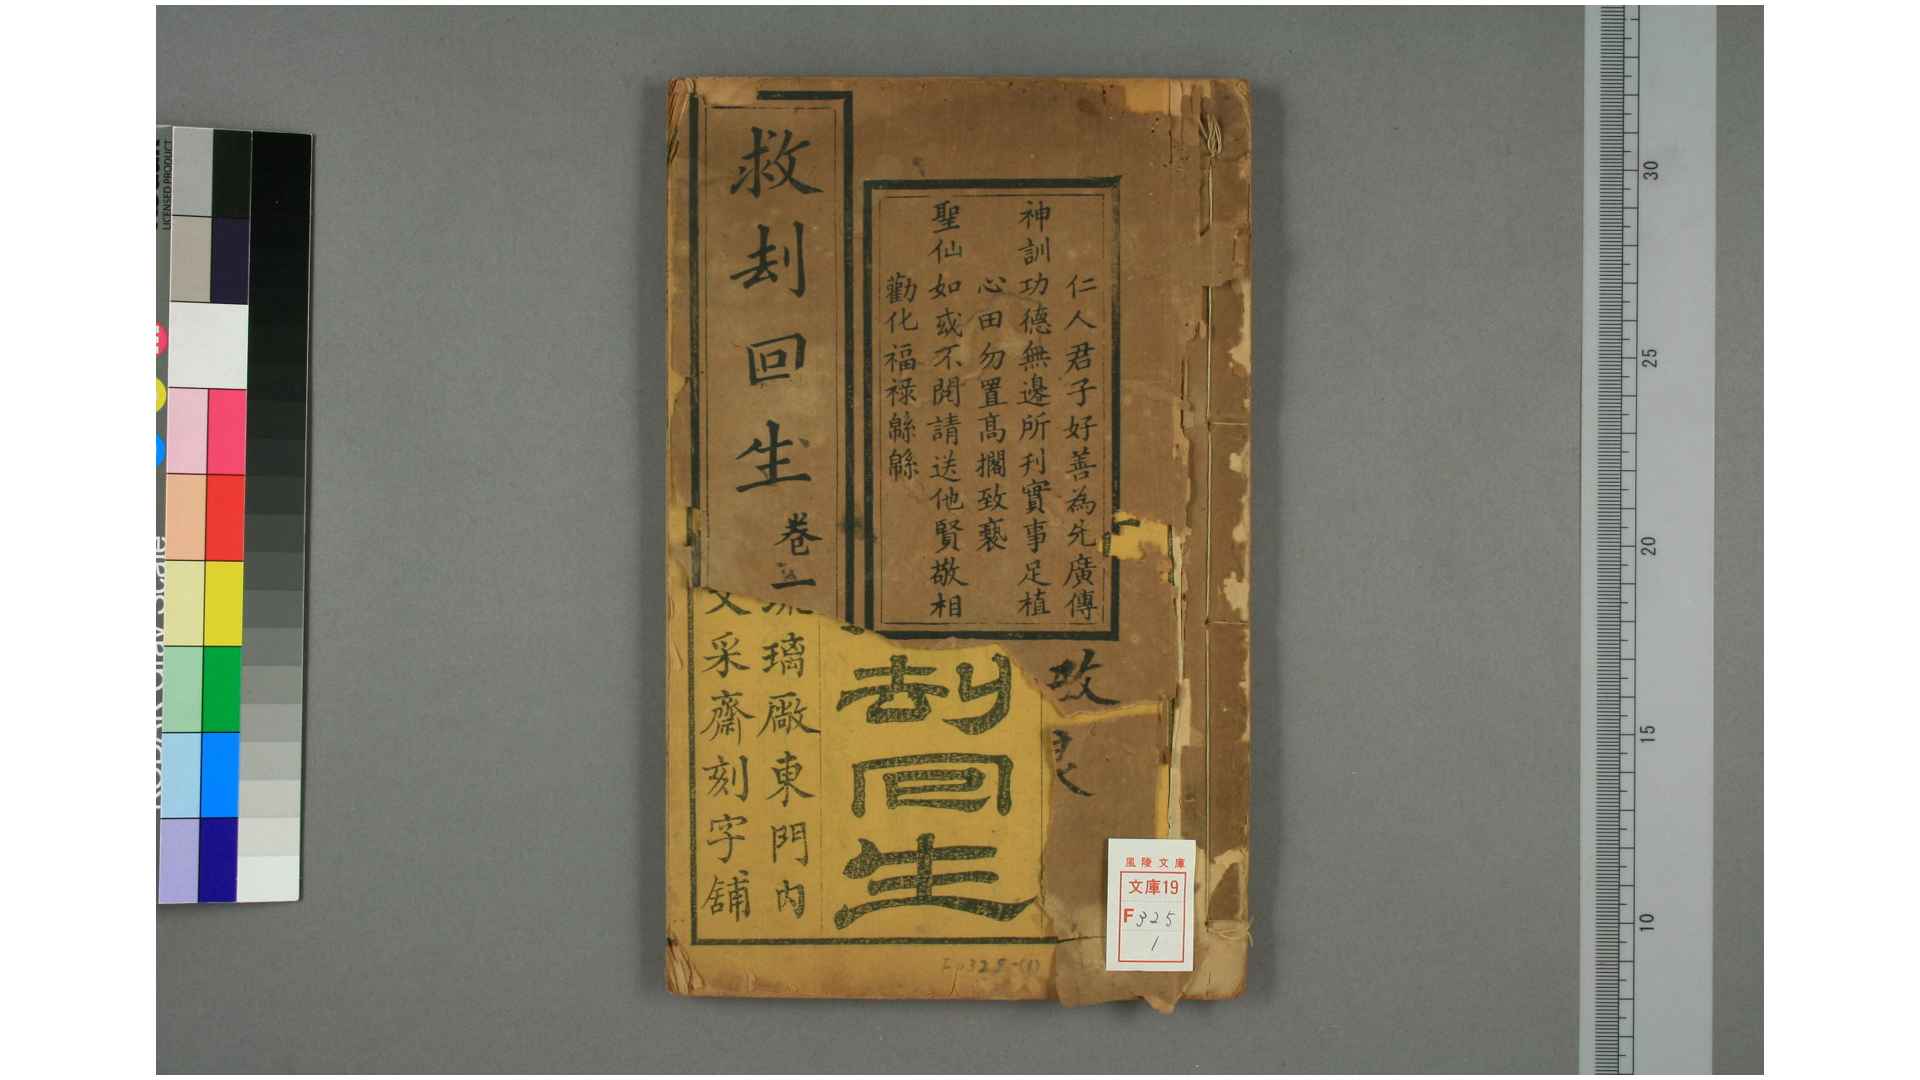 仁人君子好善為先廣傳
神訓功德無邊所刋實事足植
心田勿置髙擱致褻
聖仙如或不閱請送他賢敬相
勸化福祿緜緜
救刦回生卷一
刦回生
琉璃廠東門內
文采齋刻字舖
風陵文庫
文庫19
F325
1
30
25
20
15
10
LICENSED PRODUCT